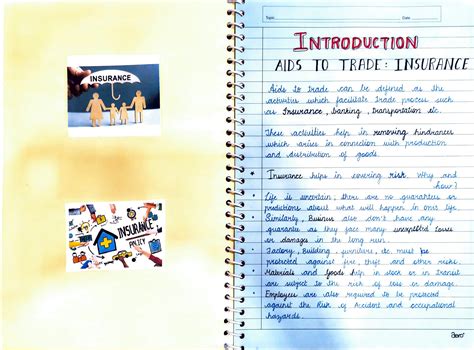 INSURANCE
INSURANCE
POLICY
Name
Date
INTRODUCTION
AIDS TO TRADE: INSURANCE
Aids to trade can be defined as the
activities which facilitate trade process such
as Insurance, banking, transportation etc.
These activities help in removing hindrances
which arises in connection with production
and distribution of goods.
* Insurance helps in covering risk. Why and
how?
• Life is uncertain, there are no guarantees or
predictions about what will happen in one's life.
• Similarly, Business also don't have any
guarantee as they face many unexpected losses
or damages in the long run.
• Factory, Building, furniture, etc. must be
protected against fire, theft and other risks.
• Materials and goods help in stock or in transit
are subject to the risk of loss or damage.
• Employees are also required to be protected
against the Risk of Accident and occupational
hazards.